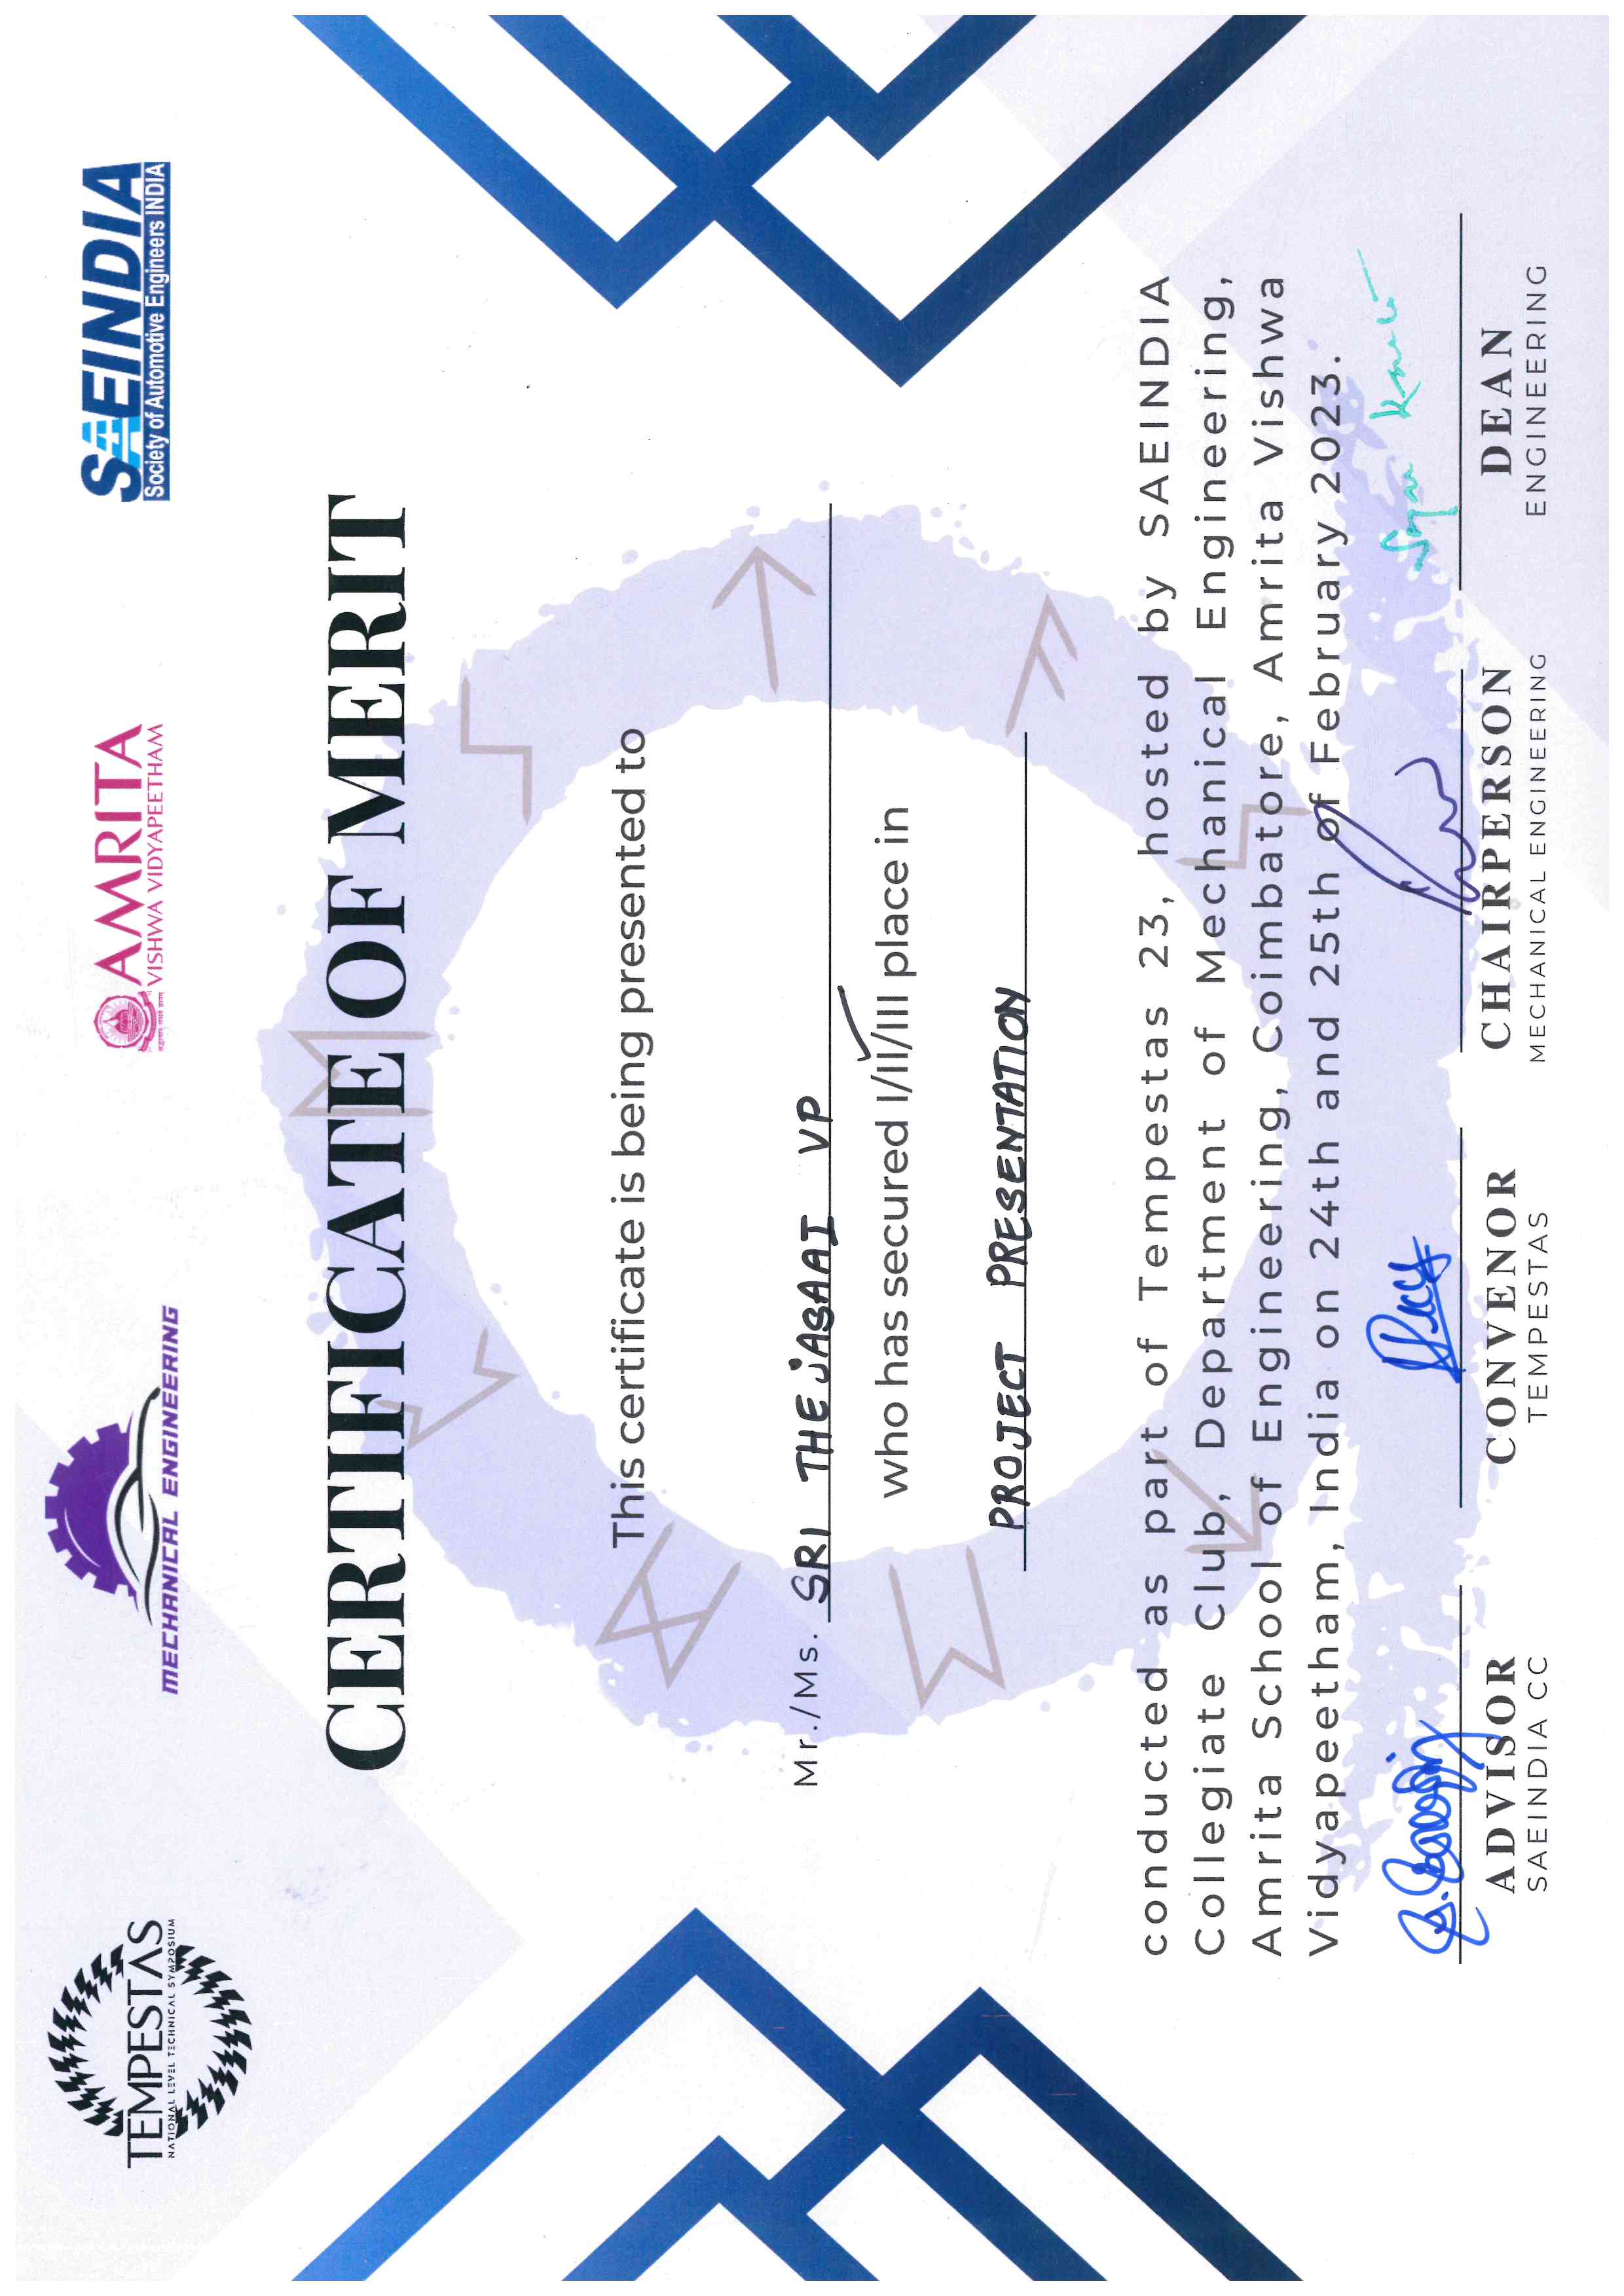 TEMPESTAS
NATIONAL LEVEL TECHNICAL SYMPOSIUM
MECHANICAL ENGINEERING
AMRITA
VISHWA VIDYAPEETHAM
SAEINDIA
Society of Automotive Engineers INDIA
CERTIFICATE OF MERIT
This certificate is being presented to
Mr./Ms. SRI THEJASAAI VP
who has secured I/II/III place in
PROJECT PRESENTATION
conducted as part of Tempestas 23, hosted by SAEINDIA
Collegiate Club, Department of Mechanical Engineering,
Amrita School of Engineering, Coimbatore, Amrita Vishwa
Vidyapeetham, India on 24th and 25th of February 2023.
ADVISOR
SAEINDIA CC
CONVENOR
TEMPESTAS
CHAIRPERSON
MECHANICAL ENGINEERING
DEAN
ENGINEERING